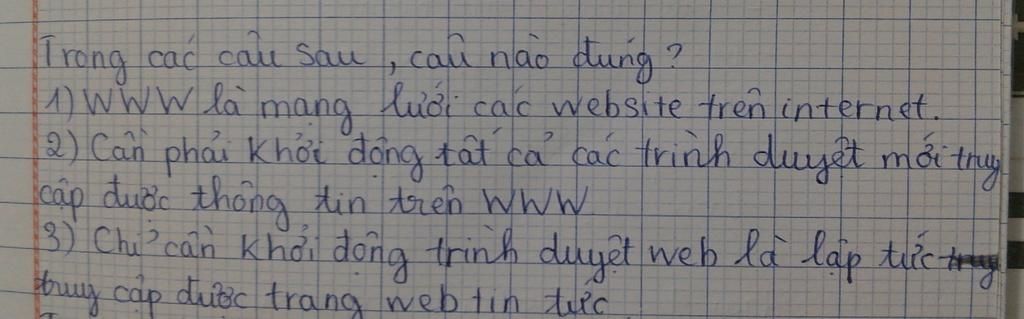 Trong các câu sau, câu nào đúng?
1) WWW là mạng lưới các website trên internet.
2) Cần phải khởi động tất cả các trình duyệt mới truy
cập được thông tin trên WWW
3) Chỉ cần khởi động trình duyệt web là lập tức truy
truy cập được trang web tin tức